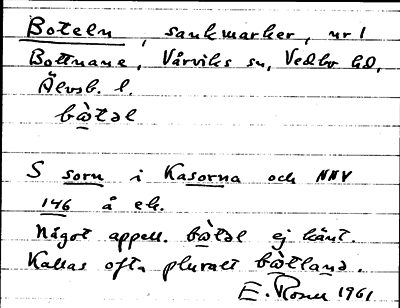 Boteln, sankmarker, nr 1
Bottnane, Vårviks sn, Vedbo hd,
Älvsb. l.
bὼtəl
S sorn i Kasorna och NNV
146 å ek.
Något appell. bὼtəl ej känt.
Kallas ofta pluralt bὼtland.
E. 1961